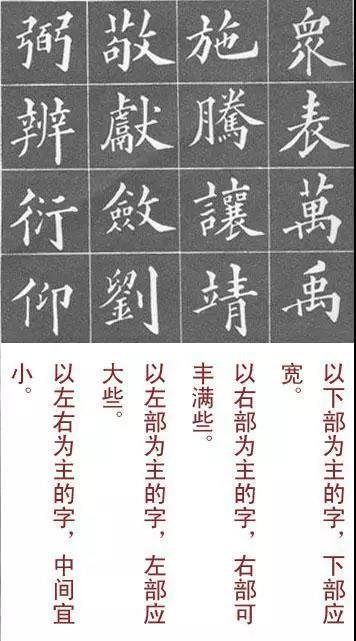 衆表萬禹
施騰讓靖
敬獻斂劉
弼辨衍仰
以下部为主的字，下部应
宽。
以右部为主的字，右部可
丰满些。
以左部为主的字，左部应
大些。
以左右为主的字，中间宜
小。